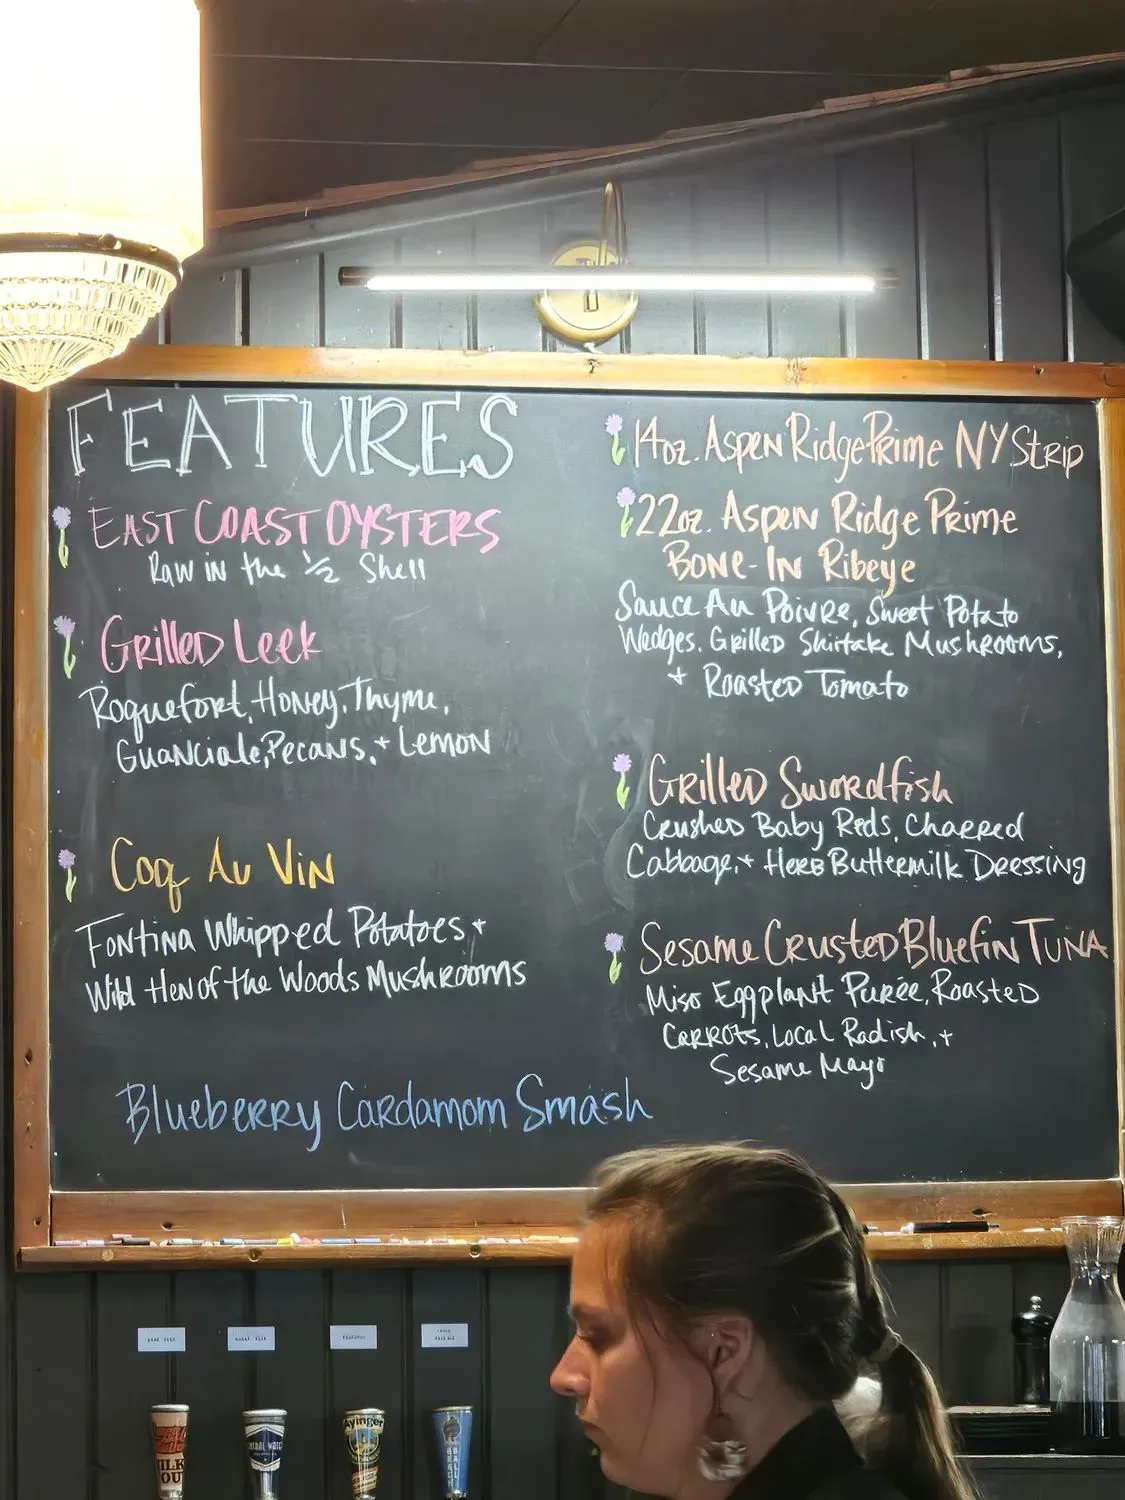 FEATURES
EAST COAST OYSTERS
Raw in the ½ Shell
Grilled Leek
Roquefort, Honey, Thyme,
Guanciale, Pecans, + Lemon
Coq Au Vin
Fontina Whipped Potatoes +
Wild Hen of the Woods Mushrooms
Blueberry Cardamom Smash
14oz. Aspen Ridge Prime NY Strip
22oz. Aspen Ridge Prime
Bone-In Ribeye
Sauce Au Poivre, Sweet Potato
Wedges, Grilled Shiitake Mushrooms,
+ Roasted Tomato
Grilled Swordfish
Crushed Baby Reds, Charred
Cabbage, + Herb Buttermilk Dressing
Sesame Crusted Bluefin Tuna
Miso Eggplant Purée, Roasted
Carrots, Local Radish, +
Sesame Mayo
MILK
Ayinger